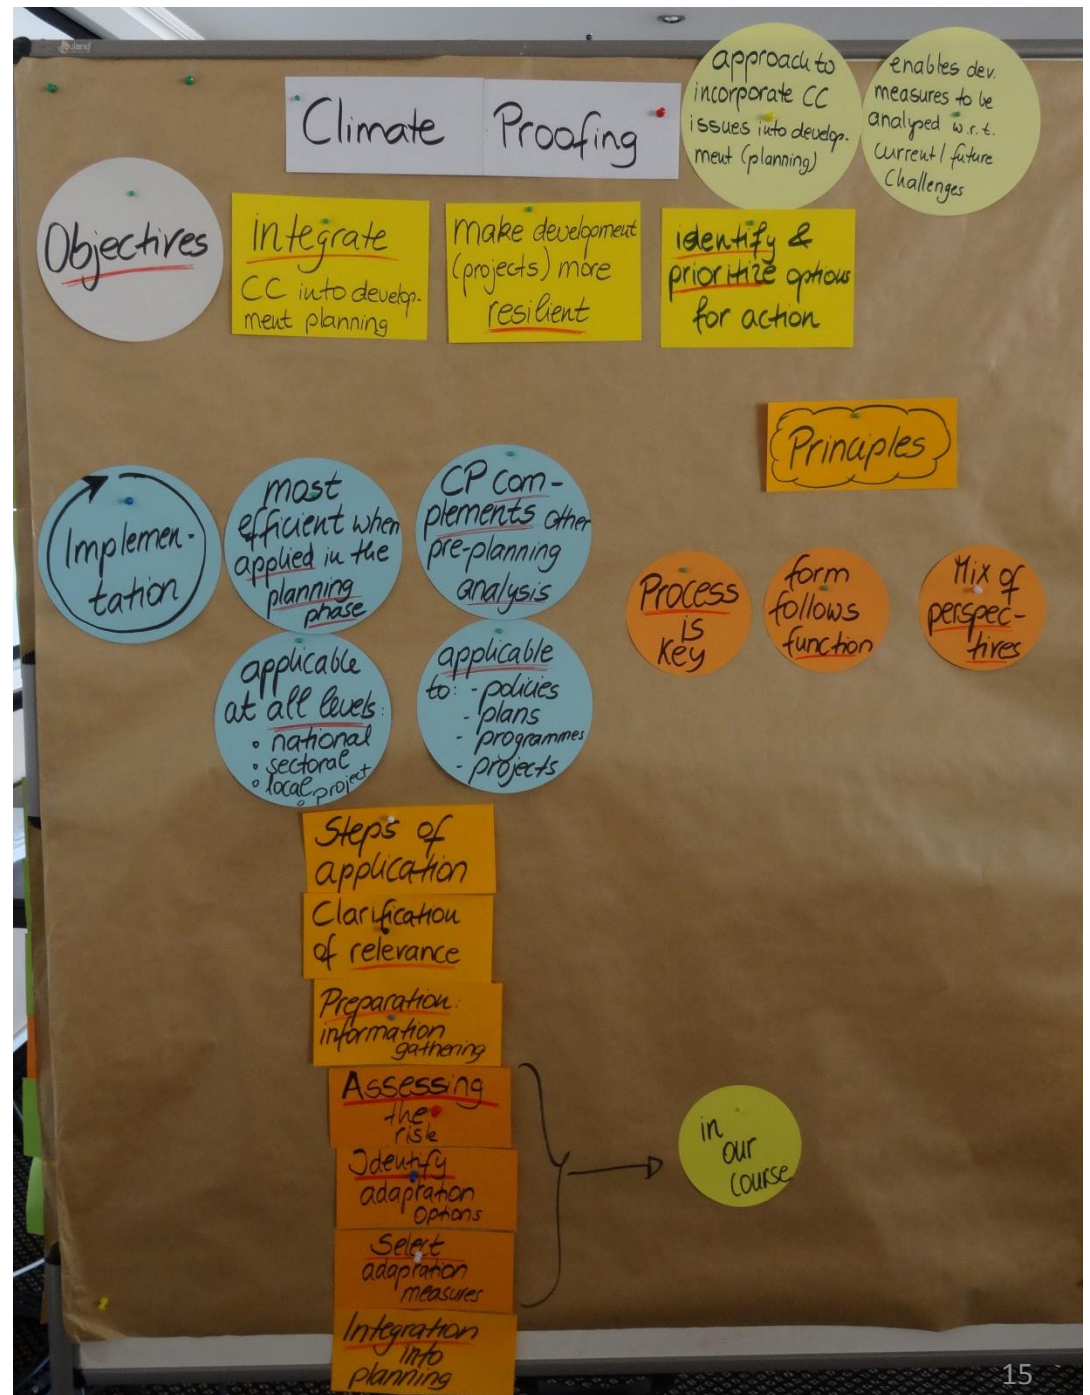 Climate Proofing
approach to
incorporate CC
issues into develop-
ment (planning)
enables dev.
measures to be
analysed w.r.t.
current/future
challenges
Objectives
integrate
CC into develop-
ment planning
make development
(projects) more
resilient
identify &
prioritize options
for action
Principles
Process
is
key
form
follows
function
Mix of
perspec-
tives
Implemen-
tation
most
efficient when
applied in the
planning
phase
CP com-
plements other
pre-planning
analysis
applicable
at all levels:
• national
• sectoral
• local
• project
applicable
to: - policies
- plans
- programmes
- projects
Steps of
application
Clarification
of relevance
Preparation:
information
gathering
Assessing
the
risk
Identify
adaptation
options
Select
adaption
measures
Integration
into
planning
in
our
course
15